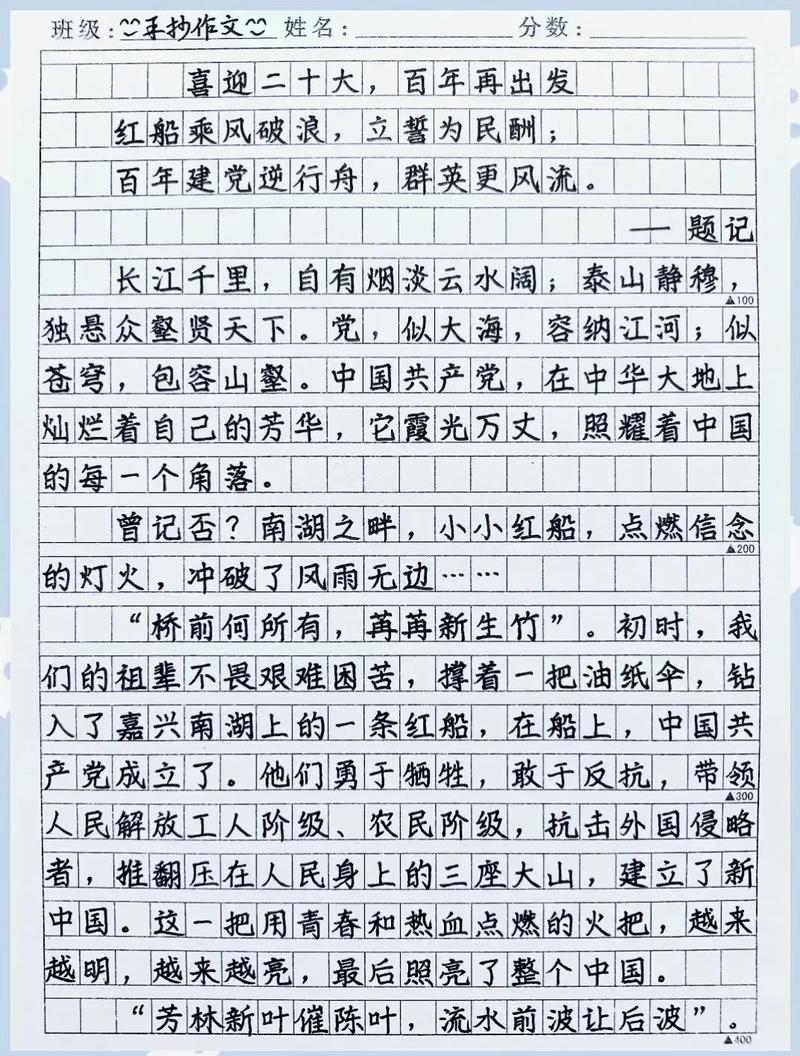 班级:手抄作文 姓名:________ 分数:________
喜迎二十大，百年再出发
红船乘风破浪，立誓为民酬；
百年建党逆行舟，群英更风流。
——题记
长江千里，自有烟淡云水阔；泰山静穆，
▲100
独悬众壑贤天下。党，似大海，容纳江河；似
苍穹，包容山壑。中国共产党，在中华大地上
灿烂着自己的芳华，它霞光万丈，照耀着中国
的每一个角落。
曾记否？南湖之畔，小小红船，点燃信念
▲200
的灯火，冲破了风雨无边……
“桥前何所有，苒苒新生竹”。初时，我
们的祖辈不畏艰难困苦，撑着一把油纸伞，钻
入了嘉兴南湖上的一条红船，在船上，中国共
产党成立了。他们勇于牺牲，敢于反抗，带领
▲300
人民解放工人阶级、农民阶级，抗击外国侵略
者，推翻压在人民身上的三座大山，建立了新
中国。这一把用青春和热血点燃的火把，越来
越明，越来越亮，最后照亮了整个中国。
“芳林新叶催陈叶，流水前波让后波”。
▲400